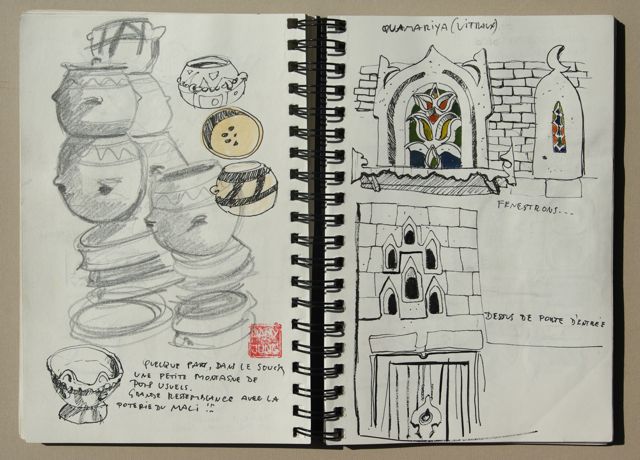 QUELQUE PART, DANS LE SOUCK,
UNE PETITE MONTAGNE DE
POTS USUELS.
GRANDE RESSEMBLANCE AVEC LA
POTERIE DU MALI !!
QUAMARIYA (VITRAUX)
FENESTRONS...
DESSUS DE PORTE D'ENTRÉE